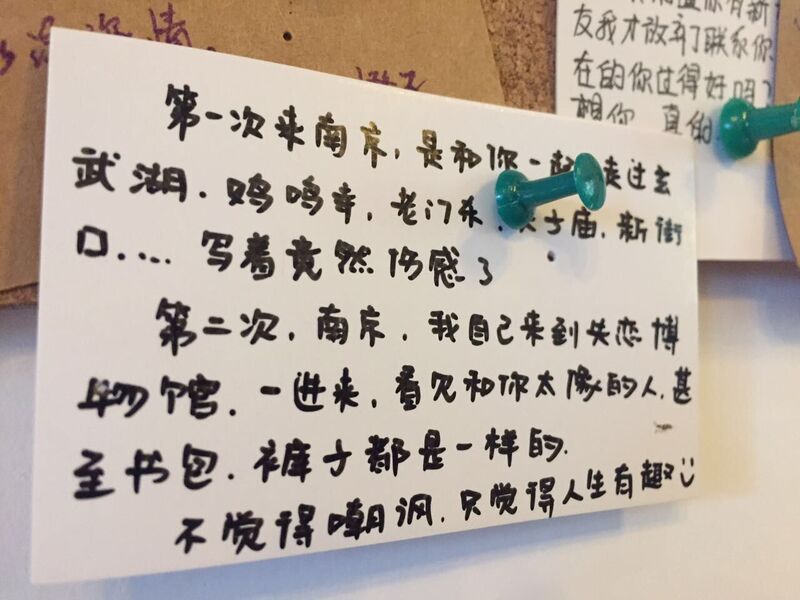 点深情.
友我才放弃了联系你
在的你过得好吗?
想你 真的
第一次来南京,是和你一起走过玄
武湖.鸡鸣寺,老门东,夫子庙.新街
口.... 写着竟然伤感了
第二次.南京,我自己来到失恋博
物馆.一进来,看见和你太像的人.甚
至书包.裤子都是一样的.
不觉得嘲讽.只觉得人生有趣